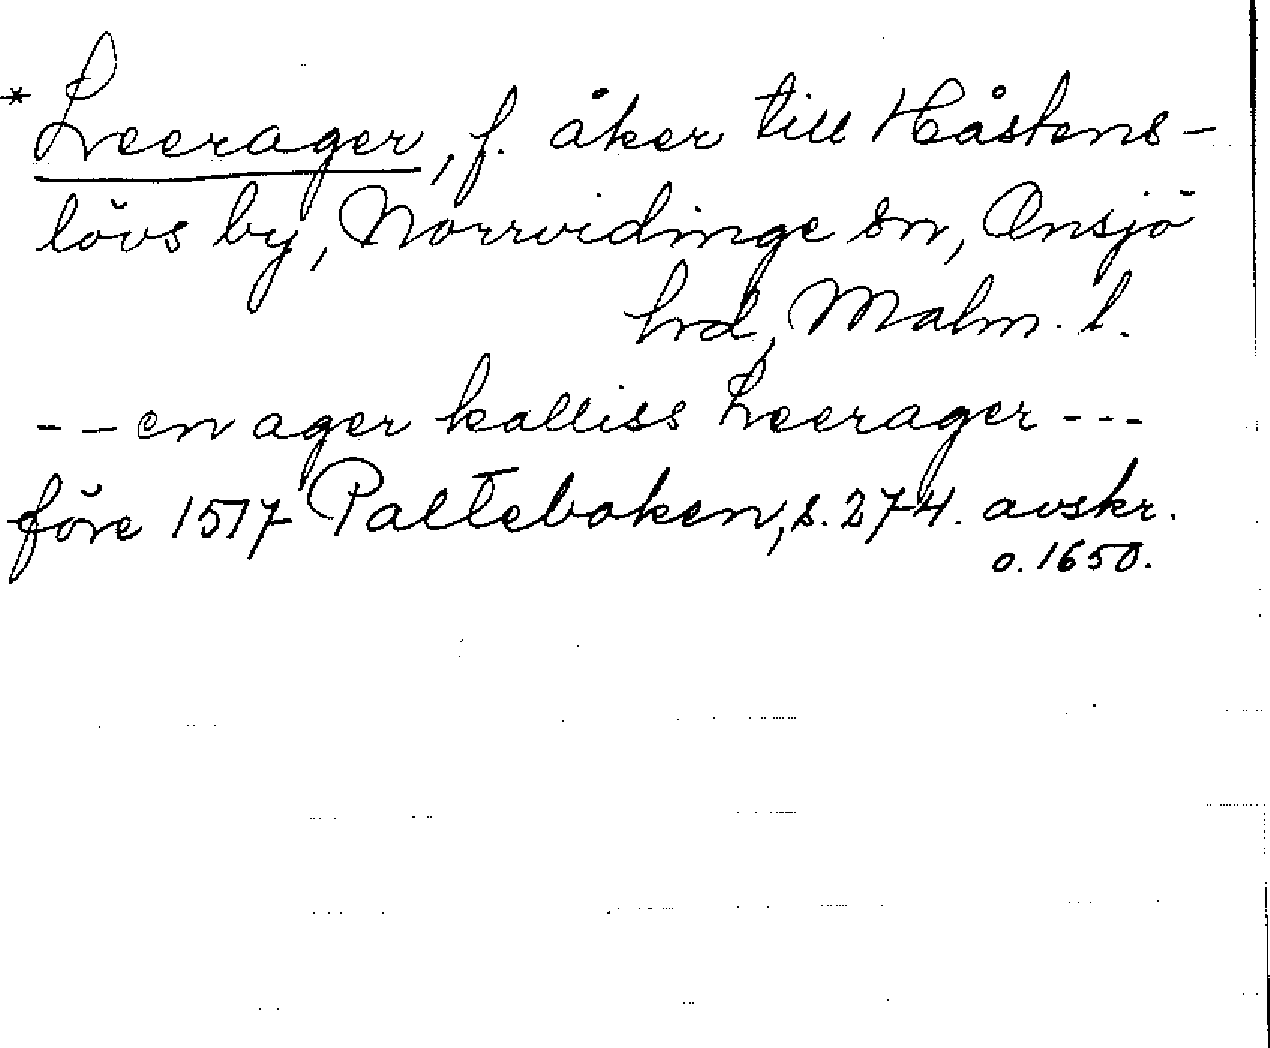 * Leerager, f. åker till Håstens-
lövs by, Norrvidinge sn, Onsjö
hrd, Malm. l.
-- en ager kalliss Leerager ---
före 1517 Palteboken, s. 274. avskr.
o. 1650.